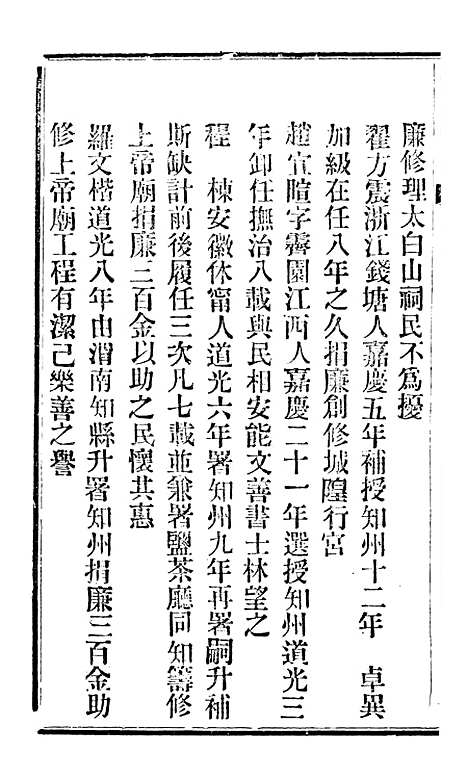 廉修理太白山祠民不爲擾
翟方震浙江錢塘人嘉慶五年補授知州十二年　卓異
加級在任八年之久捐廉創修城隍行宮
趙宜暄字霽園江西人嘉慶二十一年選授知州道光三
年卸任撫治八載與民相安能文善書士林望之
程　棟安徽休甯人道光六年署知州九年再署嗣升補
斯缺計前後履任三次凡七載並兼署鹽茶廳同知籌修
上帝廟捐廉三百金以助之民懷其惠
羅文楷道光八年由渭南知縣升署知州捐廉三百金助
修上帝廟工程有潔己樂善之譽